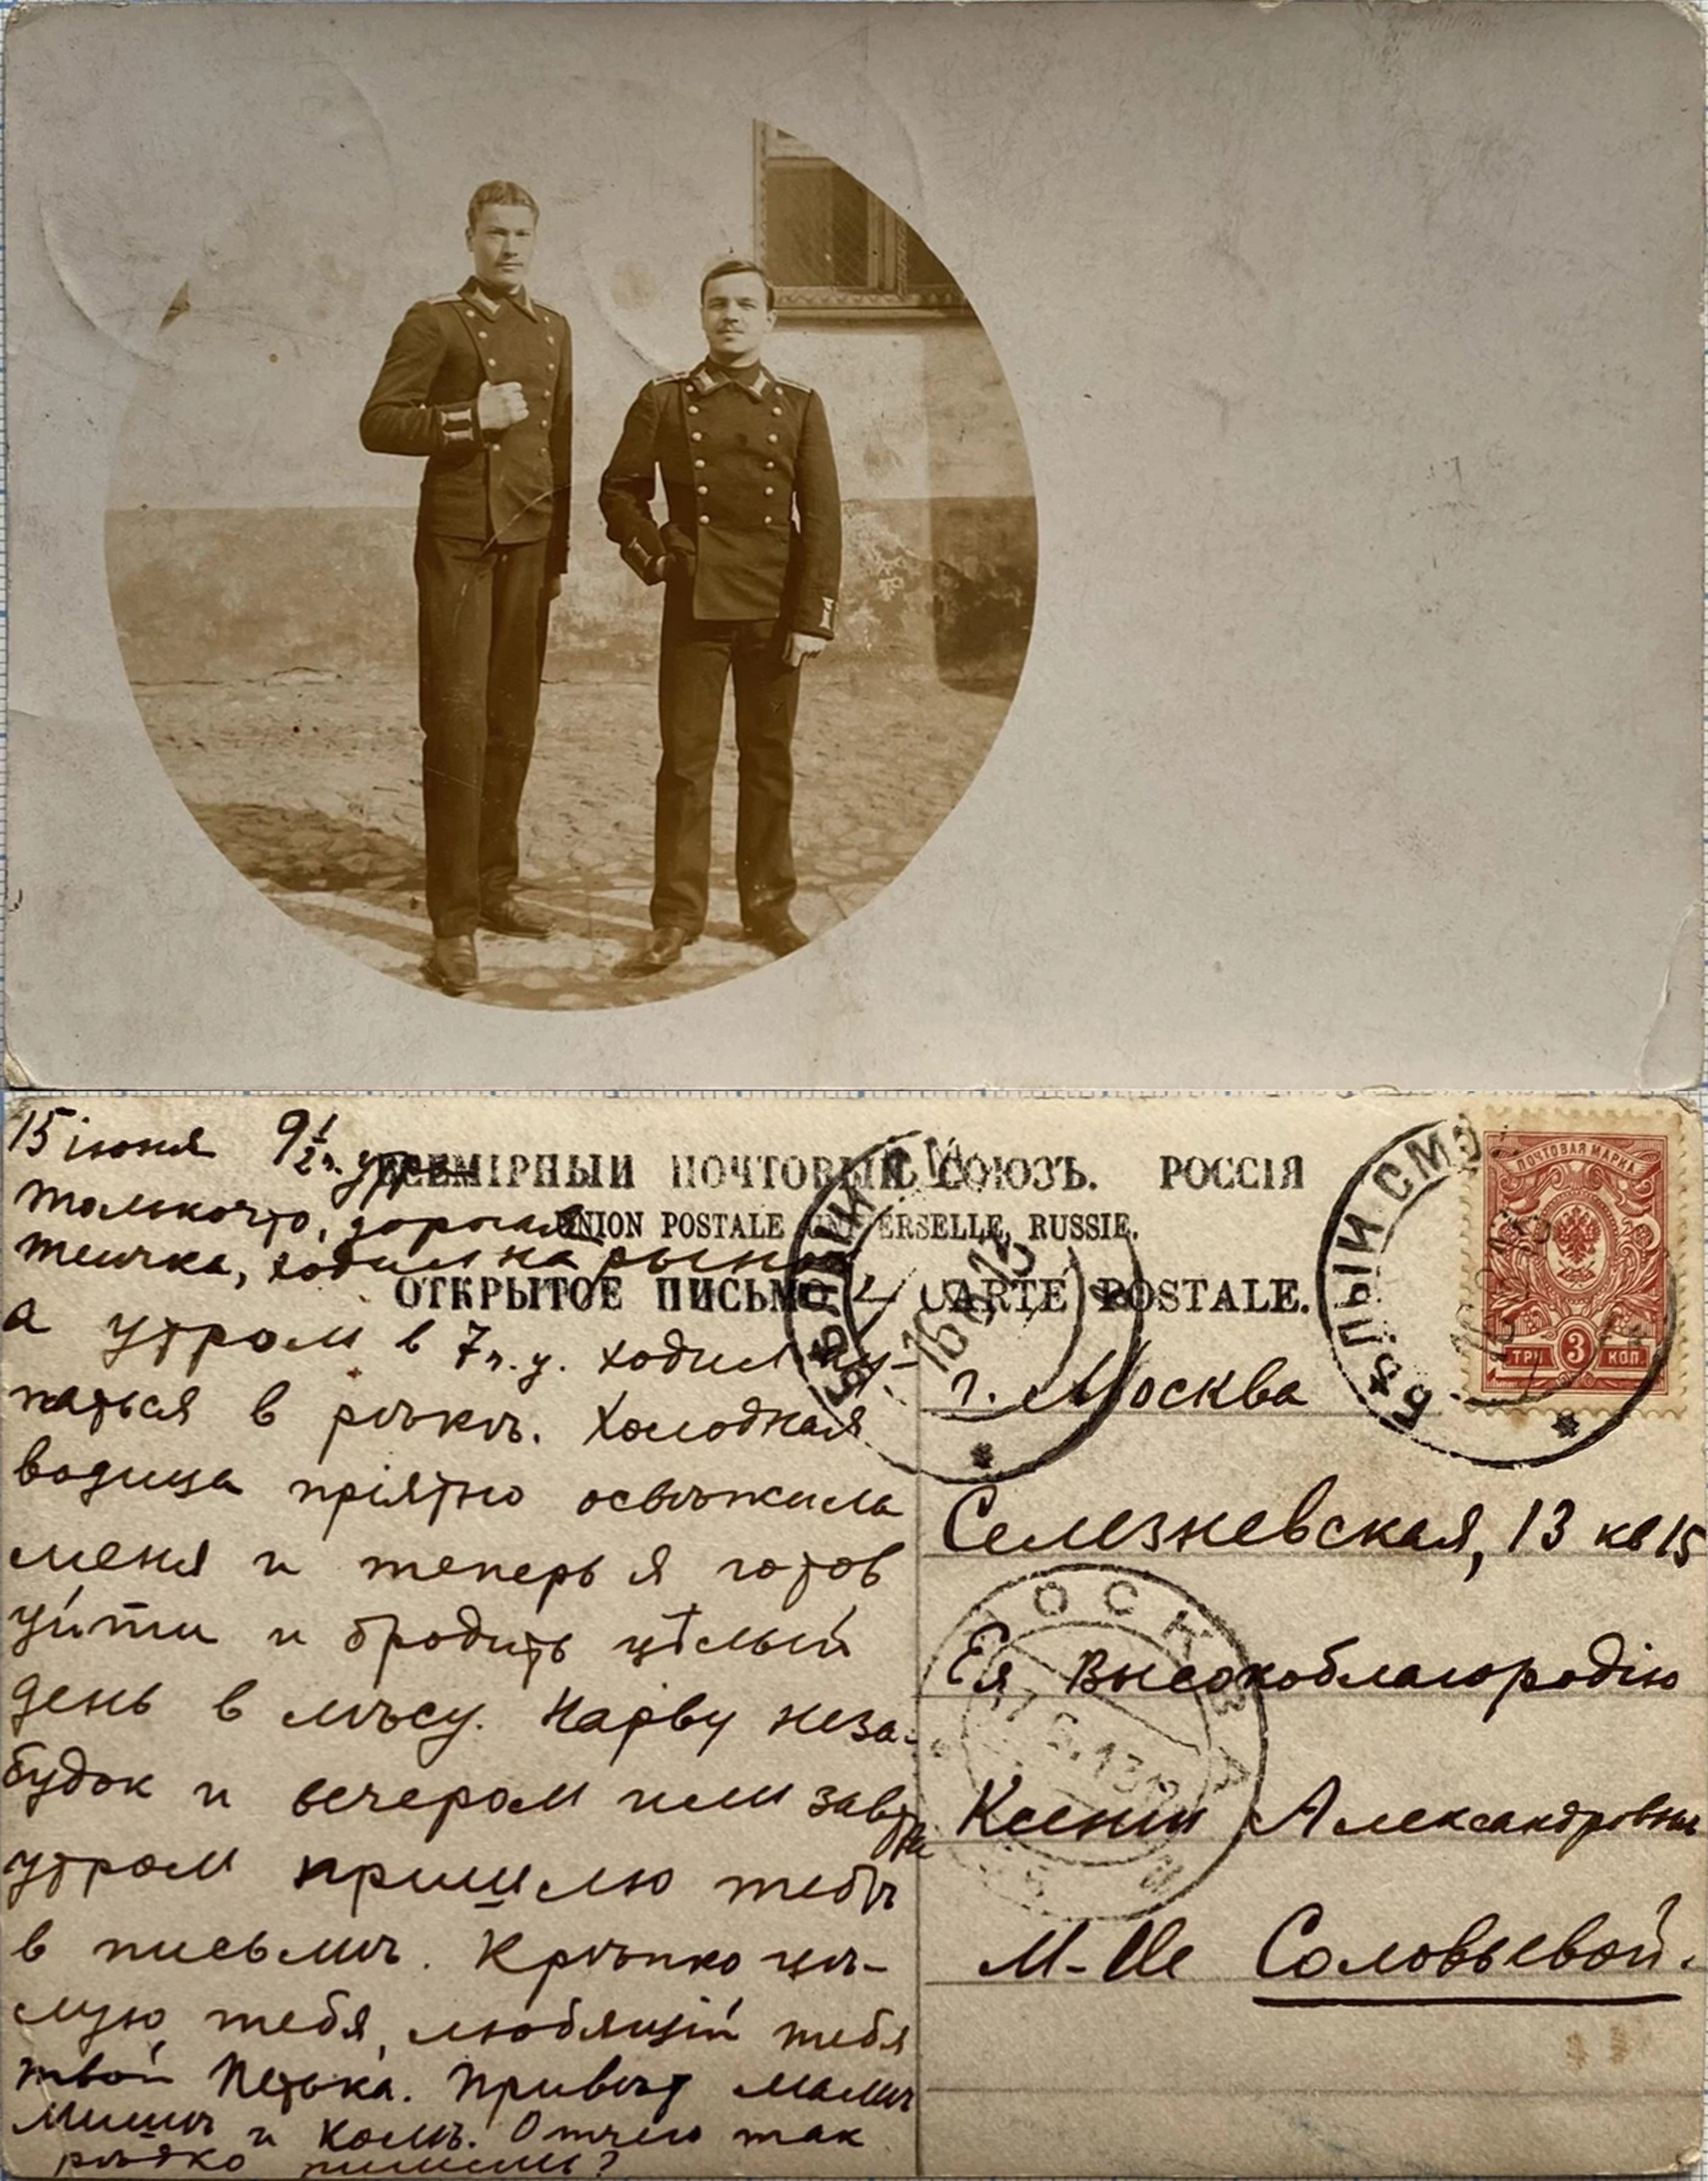 15 iюня 9 1/2 ч. утра
Только что, дорогая
теичка, ходил на рынок
а утром в 7 ч. у. ходил ку-
паться в рѣкѣ. Холодная
водица прiятно освѣжила
меня и теперь я готов
уйти и бродить цѣлый
день в лѣсу. Нарву неза-
будок и вечером или завтра
утром пришлю тебѣ
в письмѣ. Крѣпко цѣ-
лую тебя, любящiй тебя
твой Петька. Привѣт мамѣ
Мишѣ и Колѣ. Отчего так
рѣдко пишешь?
ВСЕМIРНЫЙ ПОЧТОВЫЙ СОЮЗЪ. РОССIЯ
UNION POSTALE UNIVERSELLE, RUSSIE.
ОТКРЫТОЕ ПИСЬМО CARTE POSTALE.
БѢЛЫЙ СМОЛ
16 6 13
БѢЛЫЙ СМО
ПОЧТОВАЯ МАРКА
ТРИ 3 КОП.
г. Москва
Селезневская, 13 кв 15
Ея Высокоблагородiю
МОСКВА
17.6.13
Ксенiи Александровнѣ
М-lle Соловьевой.